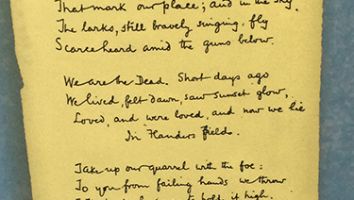 That mark our place; and in the sky
The larks, still bravely singing, fly
Scarce heard amid the guns below.
We are the Dead. Short days ago
We lived, felt dawn, saw sunset glow,
Loved, and were loved, and now we lie
In Flanders fields.
Take up our quarrel with the foe:
To you from failing hands we throw
hold it high.